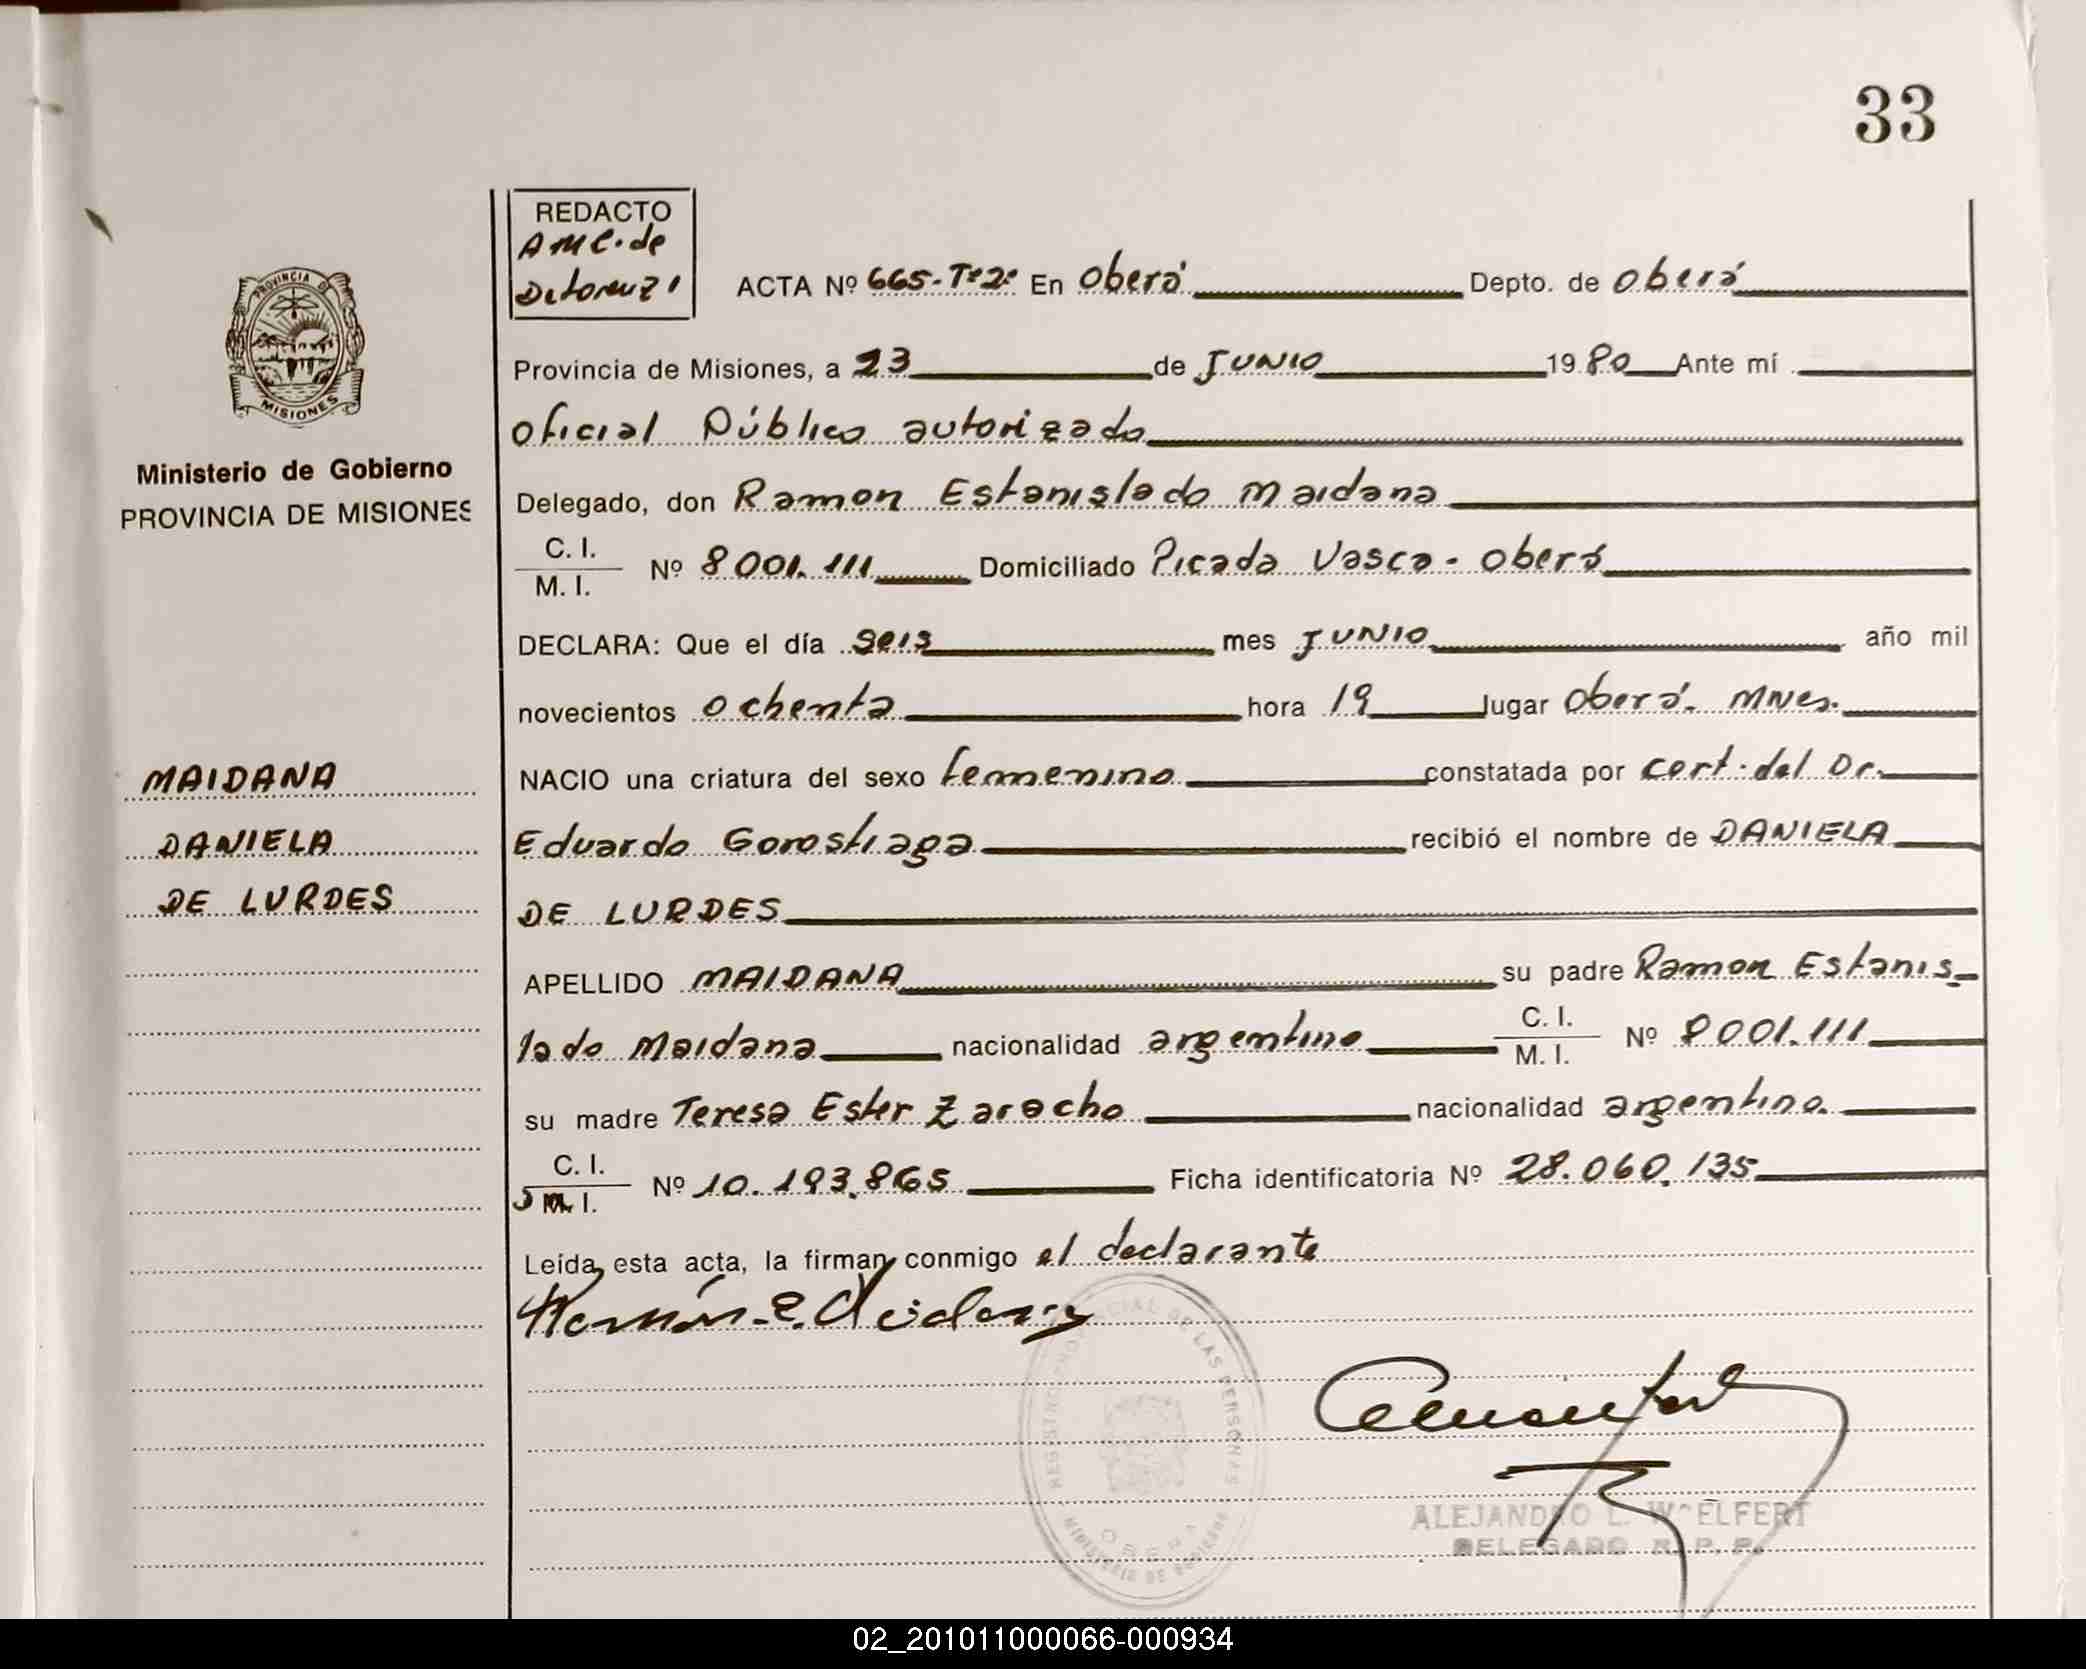 33
REDACTO
AMC. de
ACTA Nº 665-Tº2º En Oberá Depto. de Oberá
Provincia de Misiones, a 23 de JUNIO 1980 Ante mí
Oficial Público autorizado
Delegado, don Ramon Estanislado Maidana
C. I.
M. I.
Nº 8001.111 Domiciliado Picada Vasca - Oberá
DECLARA: Que el día seis mes JUNIO año mil
novecientos ochenta hora 19 lugar Oberá. Mnes.
NACIO una criatura del sexo femenino constatada por cert. del Dr.
Eduardo Gorostiaga recibió el nombre de DANIELA
DE LURDES
APELLIDO MAIDANA su padre Ramon Estanis-
lado Maidana nacionalidad argentino C. I.
M. I. Nº 8001.111
su madre Teresa Ester Zaracho nacionalidad argentina.
C. I.
M. I.
Nº 10.193.865 Ficha identificatoria Nº 28.060.135
Leída esta acta, la firman conmigo el declarante
PROVINCIA DE
MISIONES
Ministerio de Gobierno
PROVINCIA DE MISIONES
MAIDANA
DANIELA
DE LURDES
REGISTRO PROVINCIAL DE LAS PERSONAS
MINISTERIO DE GOBIERNO
OBERA
ALEJANDRO L. WOELFERT
DELEGADO R. P. P.
02_201011000066-000934